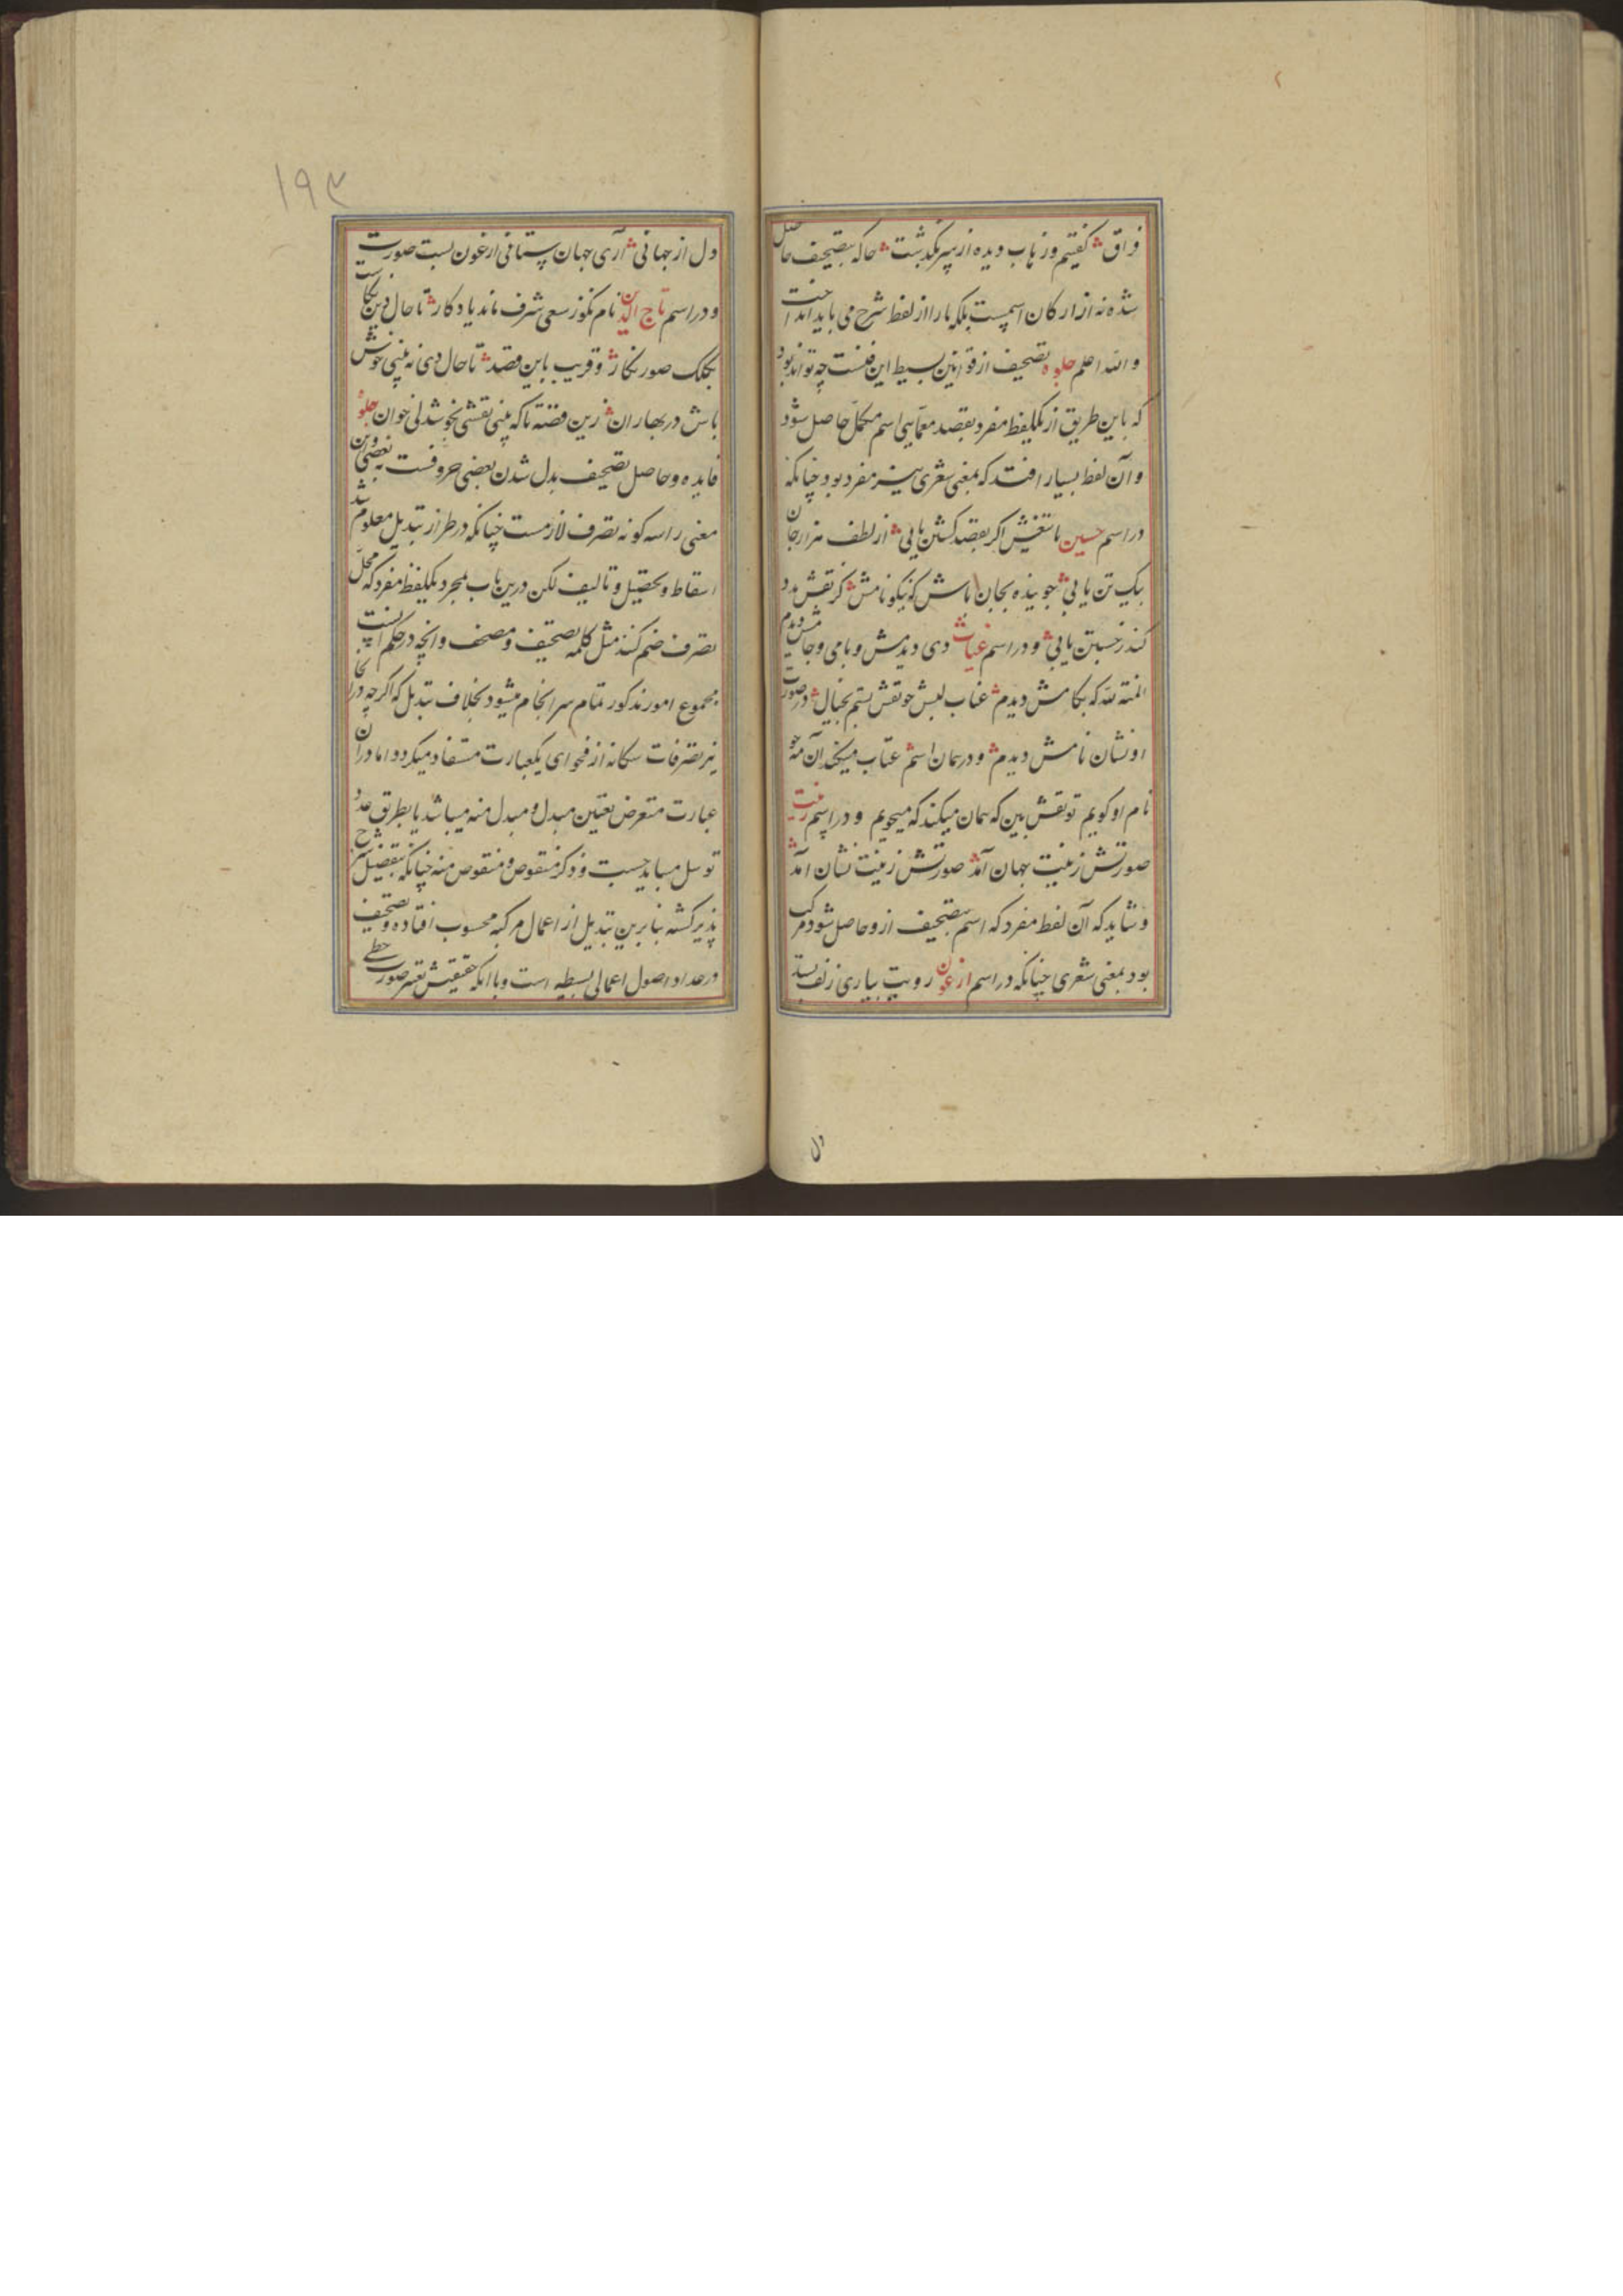 فراق ش گفتیم وز باب دیده از سر گذشت ش حاکه بتصحیف حاصل
شده نه از ارکان اسمیست بلکه بارا از لفظ شرح می باید انداخت
والله اعلم جلوه تصحیف از قوانین بسیط این فنست چه تواند بود
که باین طریق از یکلفظ مفرد بقصد معمایی اسم مکمل حاصل شود
و آن لفظ بسیار افتد که بمعنی شعری نیز مفرد بود چنانکه
در اسم حسین با تیغش اگر بقصد کشتن یابی ش از لطف هزار جان
بیک تن یابی ش جوینده بجان باش که نیکو نامش ش گر نقش مدد
کند ز حسبتن یابی ش و در اسم غیاث دی دیدمش و بامی و جامش دیدم
المنة لله که بکامش دیدم ش عناب لبش چو نقش بستم بخیال ش در صورت
او نشان نامش دیدم ش و در همان اسم عتاب میکند آن مه چو
نام او گویم تو نقش بین که همان میکند که میجویم و در اسم زینت
صورتش زینت جهان آمد ش صورتش زینت نشان آمد ش
و شاید که آن لفظ مفرد که اسم بتصحیف ازو حاصل شود مرکب
بود بمعنی شعری چنانکه در اسم ارغون رویت بیاری زلف بستد
دل
۱۹۳
دل از جهانی ش آری جهان ستانی ارغون بست صورت
و در اسم تاج الدین نام نکو ز سعی شرف ماند یادگار ش تا حال دین نکاست
بکلک صور نگار ش و قریب باین قصد ش تا حال دی نه بینی خوش
باش در بهاران ش زین قصه تا که بینی نقشی بخوشدلی خوان جلوه
فایده و حاصل تصحیف بدل شدن بعضی حروفست به بعضی و این
معنی را سه گونه تصرف لازمست چنانکه در طراز تبدیل معلوم شد
اسقاط و تحصیل و تالیف لکن درین باب بمجرد یکلفظ مفرد که بمحل
تصرف ضم کنند مثل کلمه تصحیف و مصحف و انچه در حکم آنست
مجموع امور مذکور تمام سرانجام میشود بخلاف تبدیل که اگرچه در انجا
نیز تصرفات سکانه از فحوای یکعبارت مستفاد میگردد اما در آن
عبارت متعرض تعیین مبدل و مبدل منه میباشد یا بطریق عدد
توسل میباید جست و ذکر منقوص و منقوص منه چنانکه بتفصیل شرح
پذیر گشته بنابرین تبدیل از اعمال مرکبه محسوب افتاده و تصحیف
در عداد اصول اعمالی بسیطه است و با انکه حقیقتش تغیر صورت خطی